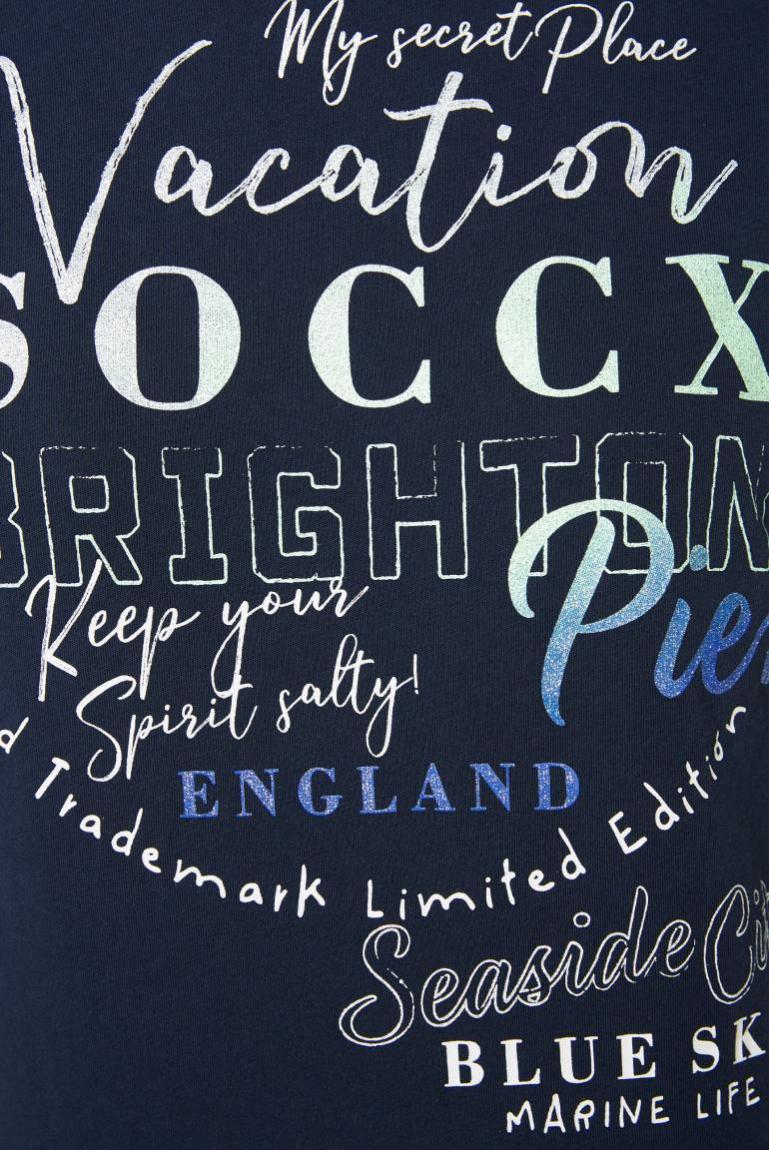 My secret Place
Vacation
SOCCX
BRIGHTON
Pier
Keep your
Spirit salty!
ENGLAND
d Trademark Limited Edition
Seaside Cit
BLUE SK
MARINE LIFE